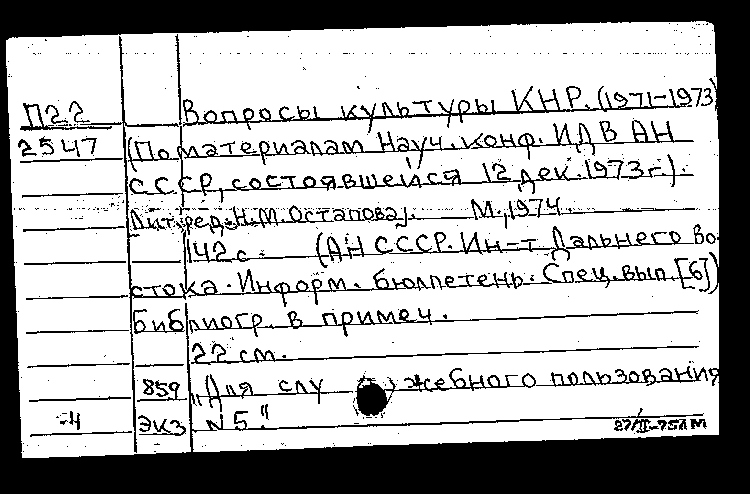 П22 Вопросы культуры КНР. (1971-1973)
2547 (По материалам Науч. конф. ИДВ АН
СССР, состоявшейся 12 дек. 1973г.).
Лит. ред. Н.М. Остапова]. М., 1974.
142 с. (АН СССР. Ин-т Дальнего Во-
стока. Информ. бюллетень. Спец. вып. [6])
Библиогр. в примеч.
22 см.
859 „Для служебного пользования
-4 экз N 5."
27/II-75